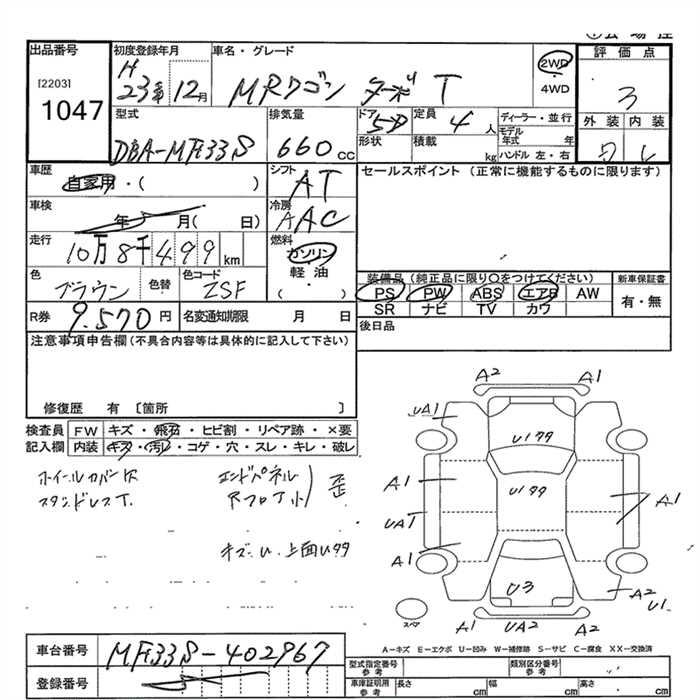 出品番号
[2203]
1047
初度登録年月
H
23年 12月
車名・グレード
MRワゴン ターボ T
2WD
・
4WD
評価点
3
外装 内装
型式
DBA-MF33S
排気量
660 cc
ドア
5D
形状
定員
4 人
積載 kg
ディーラー・並行
モデル
年式 年
ハンドル 左・右
車歴
自家用・( )
シフト
AT
セールスポイント (正常に機能するものに限ります)
車検
年 月( 日)
冷房
AAC
走行
10万8千499 km
燃料
ガソリン
軽油
( ・ )
色
ブラウン
色替
色コード
ZSF
装備品 (純正品に限り○をつけてください)
新車保証書
PS PW ABS エアB AW
有・無
SR ナビ TV カワ
R券
9.570 円
名変通知期限 月 日
後日品
注意事項申告欄 (不具合内容等は具体的に記入して下さい)
修復歴 有 〔箇所 〕
検査員
記入欄
FW キズ・飛石・ヒビ割・リペア跡・×要
内装 キズ・汚レ・コゲ・穴・スレ・キレ・破レ
ホイールカバーキズ
スタッドレスT.
エンドパネル
RフロT小
歪
キズ.U. 上面U99
A2
A1
UA1
U199
A1
U199
A1
UA1
A1
U3
A2
U1
スペア
A1
UA2
A1
A-キズ E-エクボ U-凹み W-補修跡 S-サビ C-腐食 XX-交換済
車台番号
MF33S-402967
登録番号
型式指定番号
参考
類別区分番号
参考
車庫証明用
参考
長さ cm
幅 cm
高さ cm